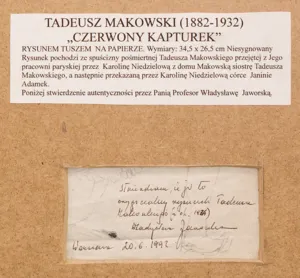 TADEUSZ MAKOWSKI (1882-1932)
„CZERWONY KAPTUREK”
RYSUNEK TUSZEM NA PAPIERZE. Wymiary: 34,5 x 26,5 cm Niesygnowany
Rysunek pochodzi ze spuścizny pośmiertnej Tadeusza Makowskiego przejętej z Jego
pracowni paryskiej przez Karolinę Niedzielową z domu Makowską siostrę Tadeusza
Makowskiego, a następnie przekazaną przez Karolinę Niedzielową córce Janinie
Adamek.
Poniżej stwierdzenie autentyczności przez Panią Profesor Władysławę Jaworską.
Stwierdzam, iż jest to
oryginalny rysunek Tadeusza
Makowskiego
Władysława Jaworska
Warszawa 20.6.1992